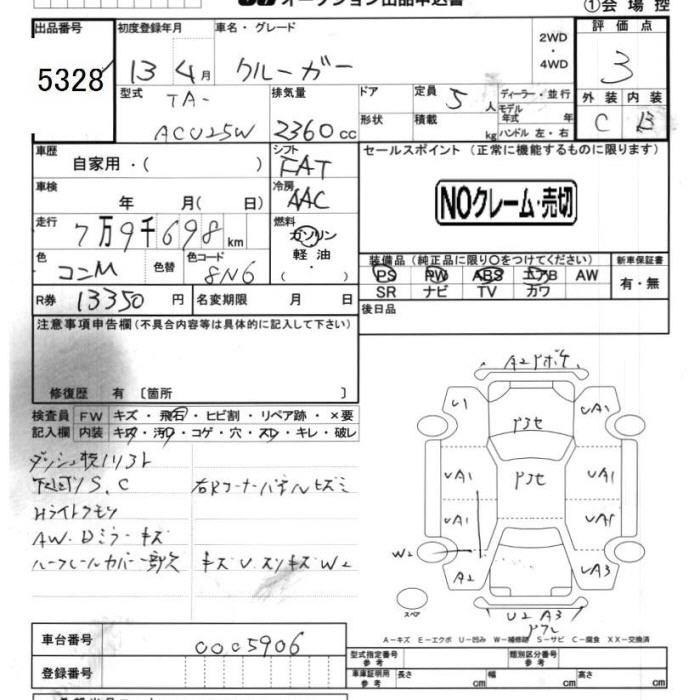 オークション出品申込書
①会場控
出品番号 初度登録年月 車名・グレード 2WD・4WD 評価点
5328 13 4月 クルーガー 3
型式 TA- ACU25W 排気量 2360cc ドア 定員 5人 ディーラー・並行 外装 内装
形状 積載 kg モデル年式 年 ハンドル 左・右 C B
車歴 自家用・( ) シフト FAT セールスポイント (正常に機能するものに限ります)
車検 年 月( 日) 冷房 AAC NOクレーム・売切
走行 7万9千698km 燃料 ガソリン
軽油
( ・ )
色 コンM 色替 色コード 8N6
装備品 (純正品に限り○をつけてください) 新車保証書
PS PW ABS エアB AW 有・無
SR ナビ TV カワ
R券 13350円 名変期限 月 日 後日品
注意事項申告欄 (不具合内容等は具体的に記入して下さい)
修復歴 有 〔箇所 〕
検査員 FW キズ・飛石・ヒビ割・リペア跡・×要
記入欄 内装 キズ・汚レ・コゲ・穴・スレ・キレ・破レ
S、C 右Rコーナーパネルヒズミ
Hライトクモリ
AW・Dミラーキズ
ルーフレールカバー一部欠 キズU、スリキズW2
A2ドボケ
U1 UA1
ドアセ
UA1 ドアセ UA1
UA1 UA1
W2
A2 UA3
スペア
U2 A3
A－キズ E－エクボ U－凹み W－補修跡 S－サビ C－腐食 XX－交換済
車台番号 0005906 型式指定番号 参考 類別区分番号 参考
登録番号 車庫証明用 参考 長さ cm 幅 cm 高さ cm